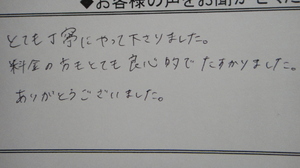 ◆お客様の声をお聞かせくだ
とても丁寧にやって下さりました。
料金の方もとても良心的でたすかりました。
ありがとうございました。